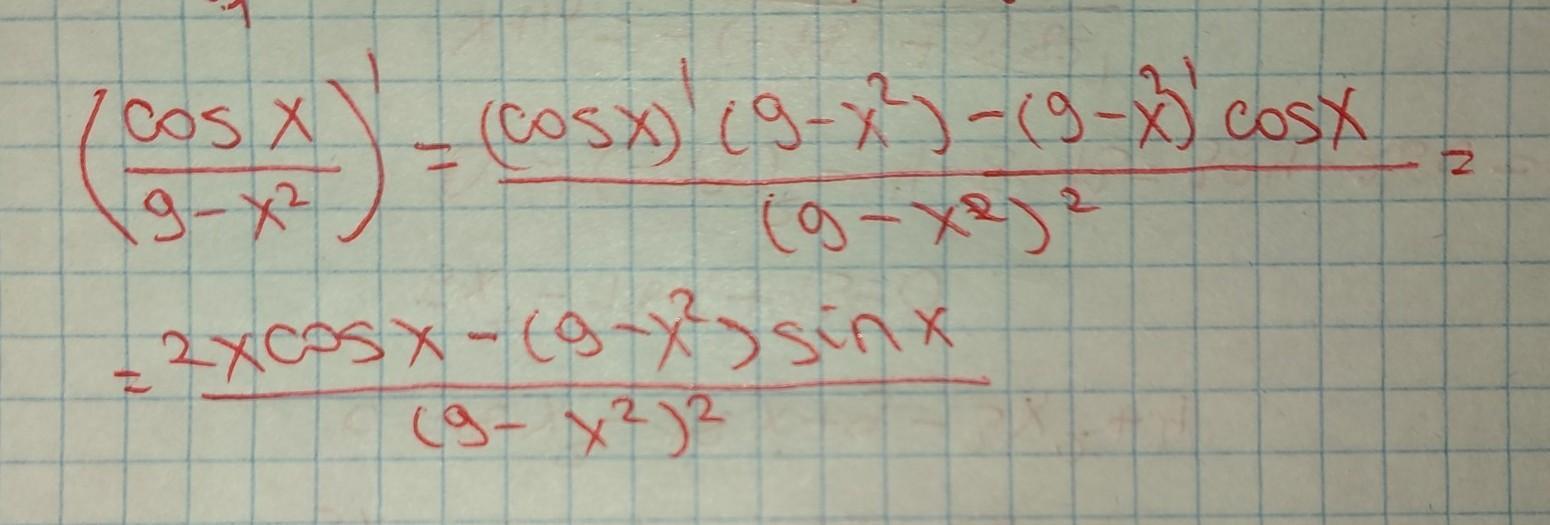 (cos x / (9 - x²))' = ((cos x)' (9 - x²) - (9 - x²)' cos x) / (9 - x²)² =
= (2x cos x - (9 - x²) sin x) / (9 - x²)²